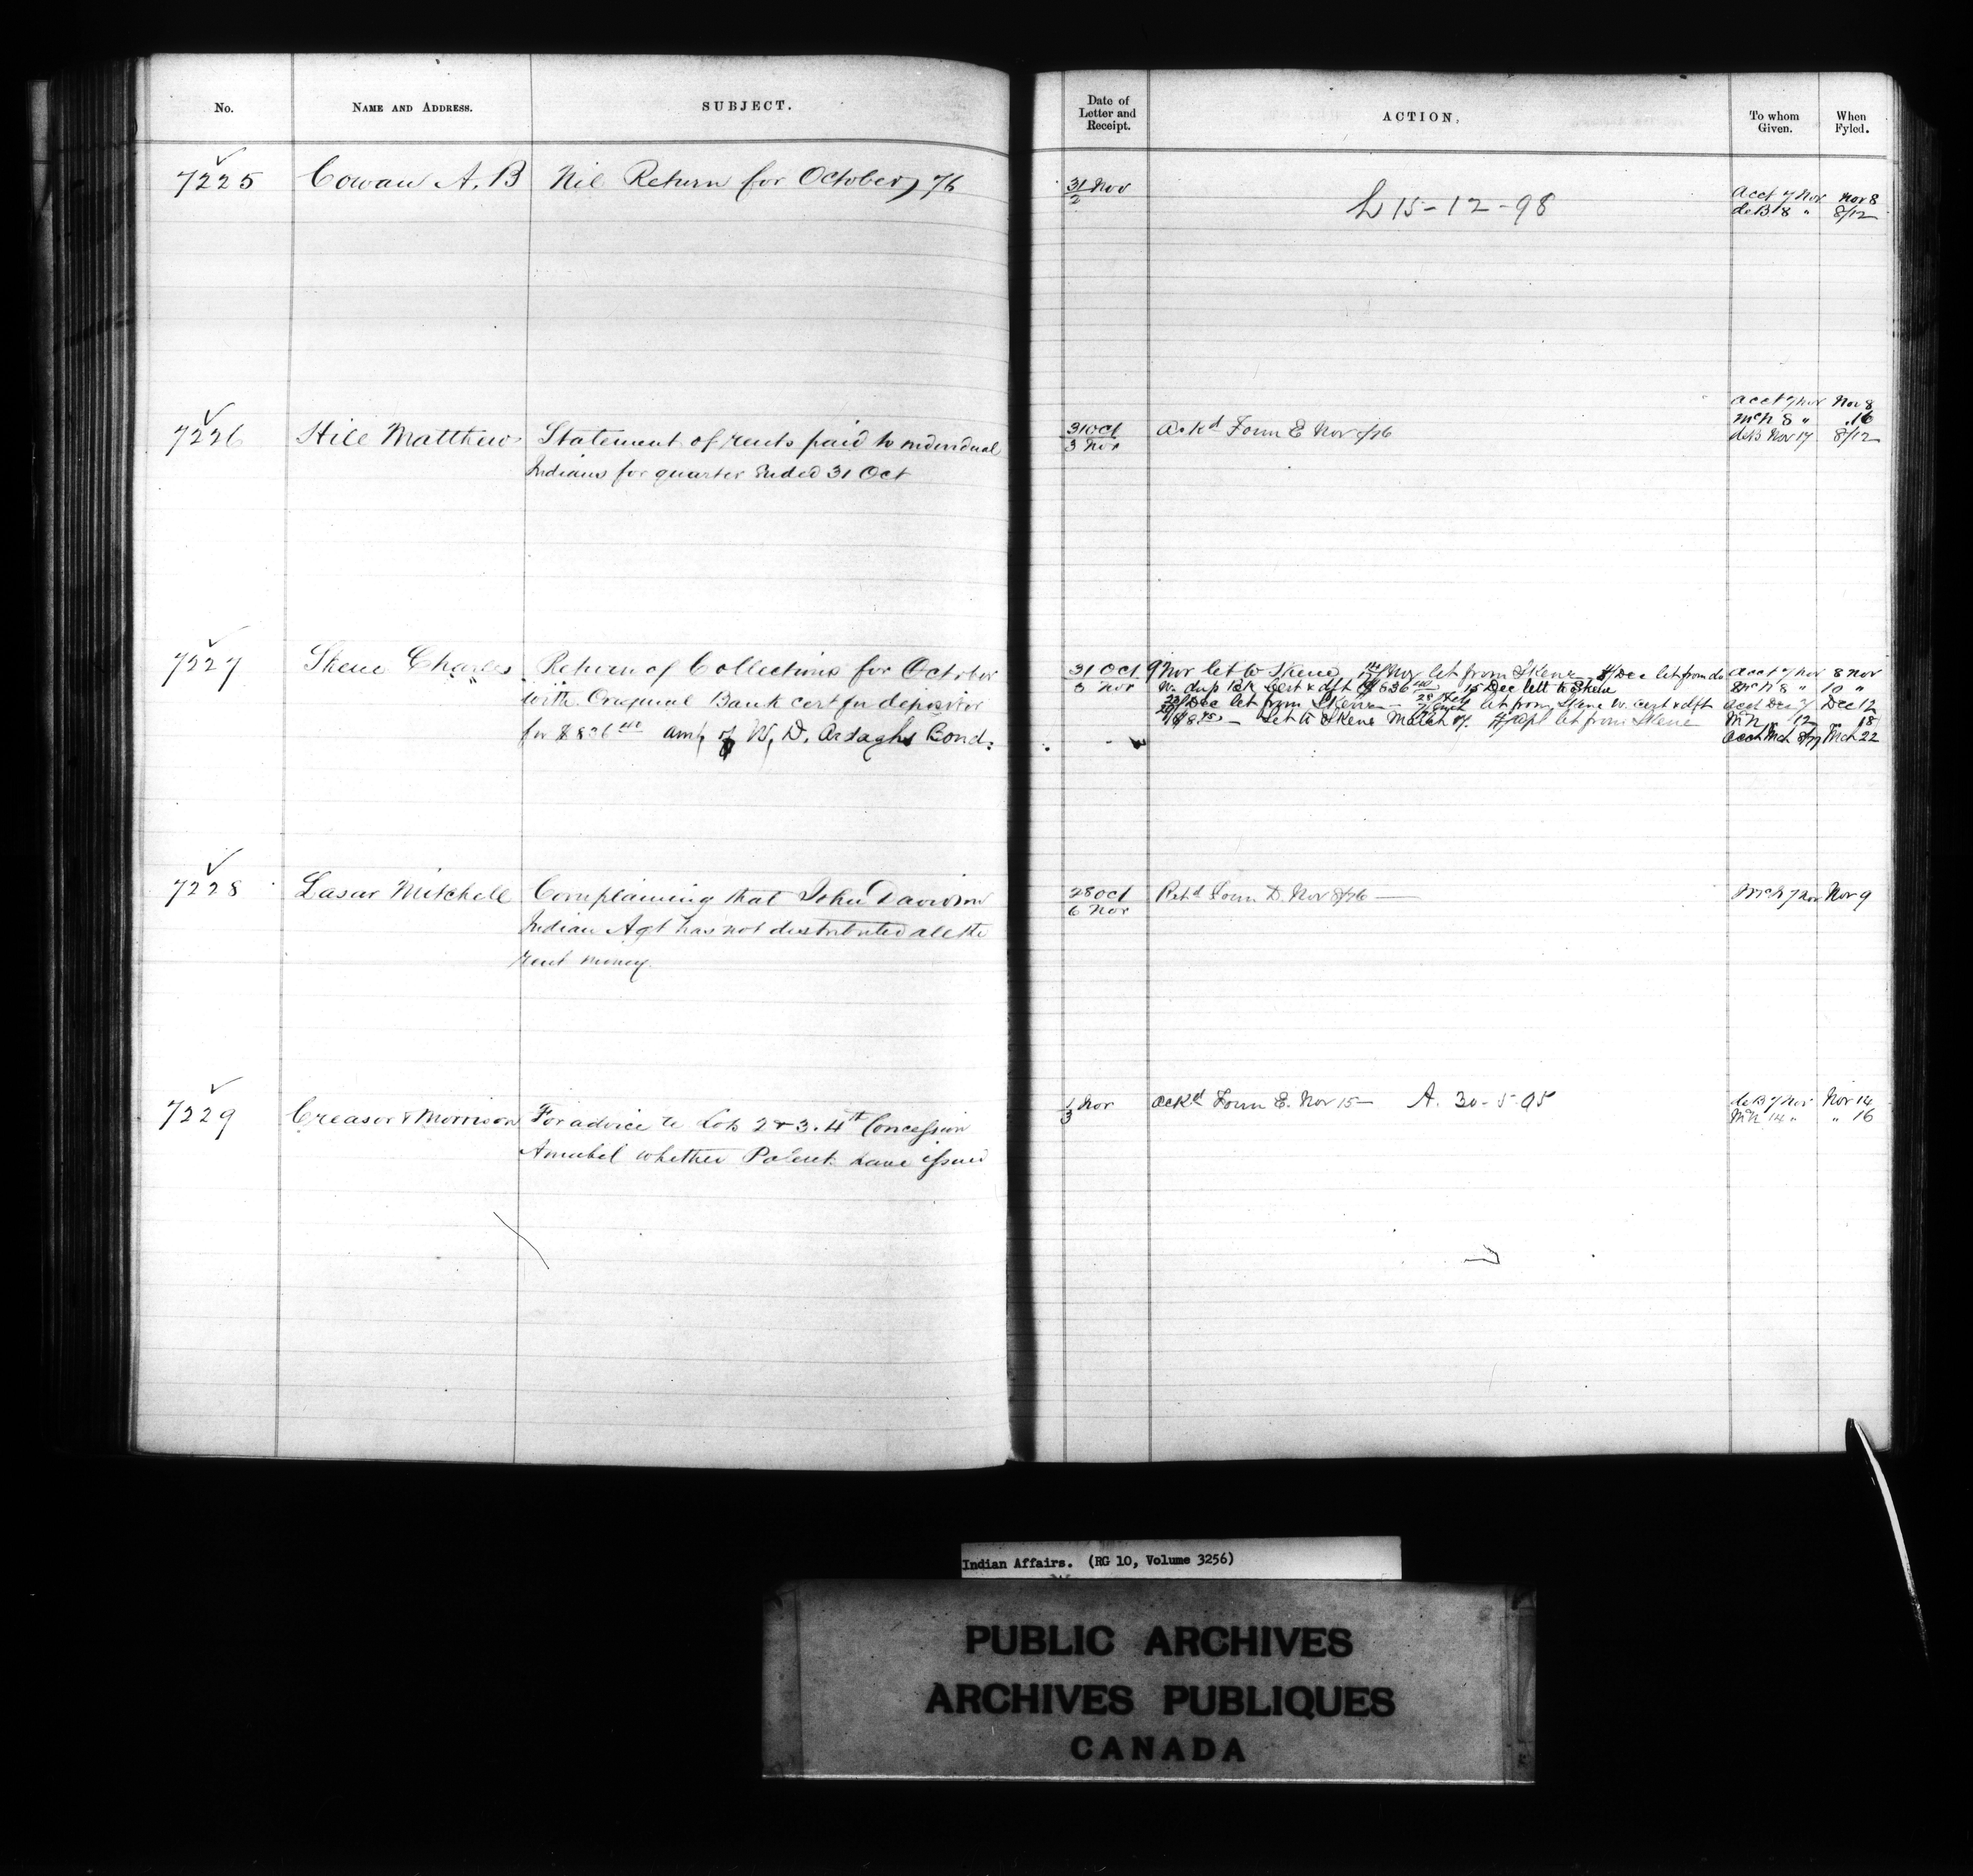 No.
NAME AND ADDRESS.
SUBJECT.
Date of
Letter and
Receipt.
ACTION,
To whom
Given.
When
Fyled.
7225
Cowan A. B
Nil Return for October, 76
31/2 Nov
L 15-12-98
Acct 7 Nov
Nov 8
deB. 8 "
8/12
7226
Hill Matthew
Statement of rents paid to individual
Indians for quarter Ended 31 Oct
31 Oct
3 Nov
Ackd Form E Nov
acct 7 Nov
Nov 8
McN 8 "
16
deB Nov 17
8/12
7227
Skene Charles
Return of Collections for October
with Original Bank cert for deposit
for $836 40 amt of W. D. Ardaghs Bond.
31 Oct
3 Nov
9 Nov let to Skene Nov let from Skene Dec let from do
W. dup Bk Cert & dft $836 40 15 Dec lett to Skene
Dec let from Skene let from Skene w. cert & dft
Let to Skene March let from Skene
acct 7 Nov
8 Nov
McN 8 "
10 "
acct Dec 7
Dec 12
McN " 12
" 18
acct Mch
Mch 22
7228
Lasar Mitchell
Complaining that John Davidson
Indian Agt has not distributed all the
rent money.
28 Oct
6 Nov
Retd Form D. Nov 8/76
McN 7 Nov
Nov 9
7229
Creasor & Morrison
For advice to Lots 2 & 3. 4th Concession
Amabel whether Patent have issued
1/3 Nov
Ackd Form E. Nov 15
A. 30-5-95
deB 7 Nov
Nov 14
McN 14 "
" 16
Indian Affairs. (RG 10, Volume 3256)
PUBLIC ARCHIVES
ARCHIVES PUBLIQUES
CANADA